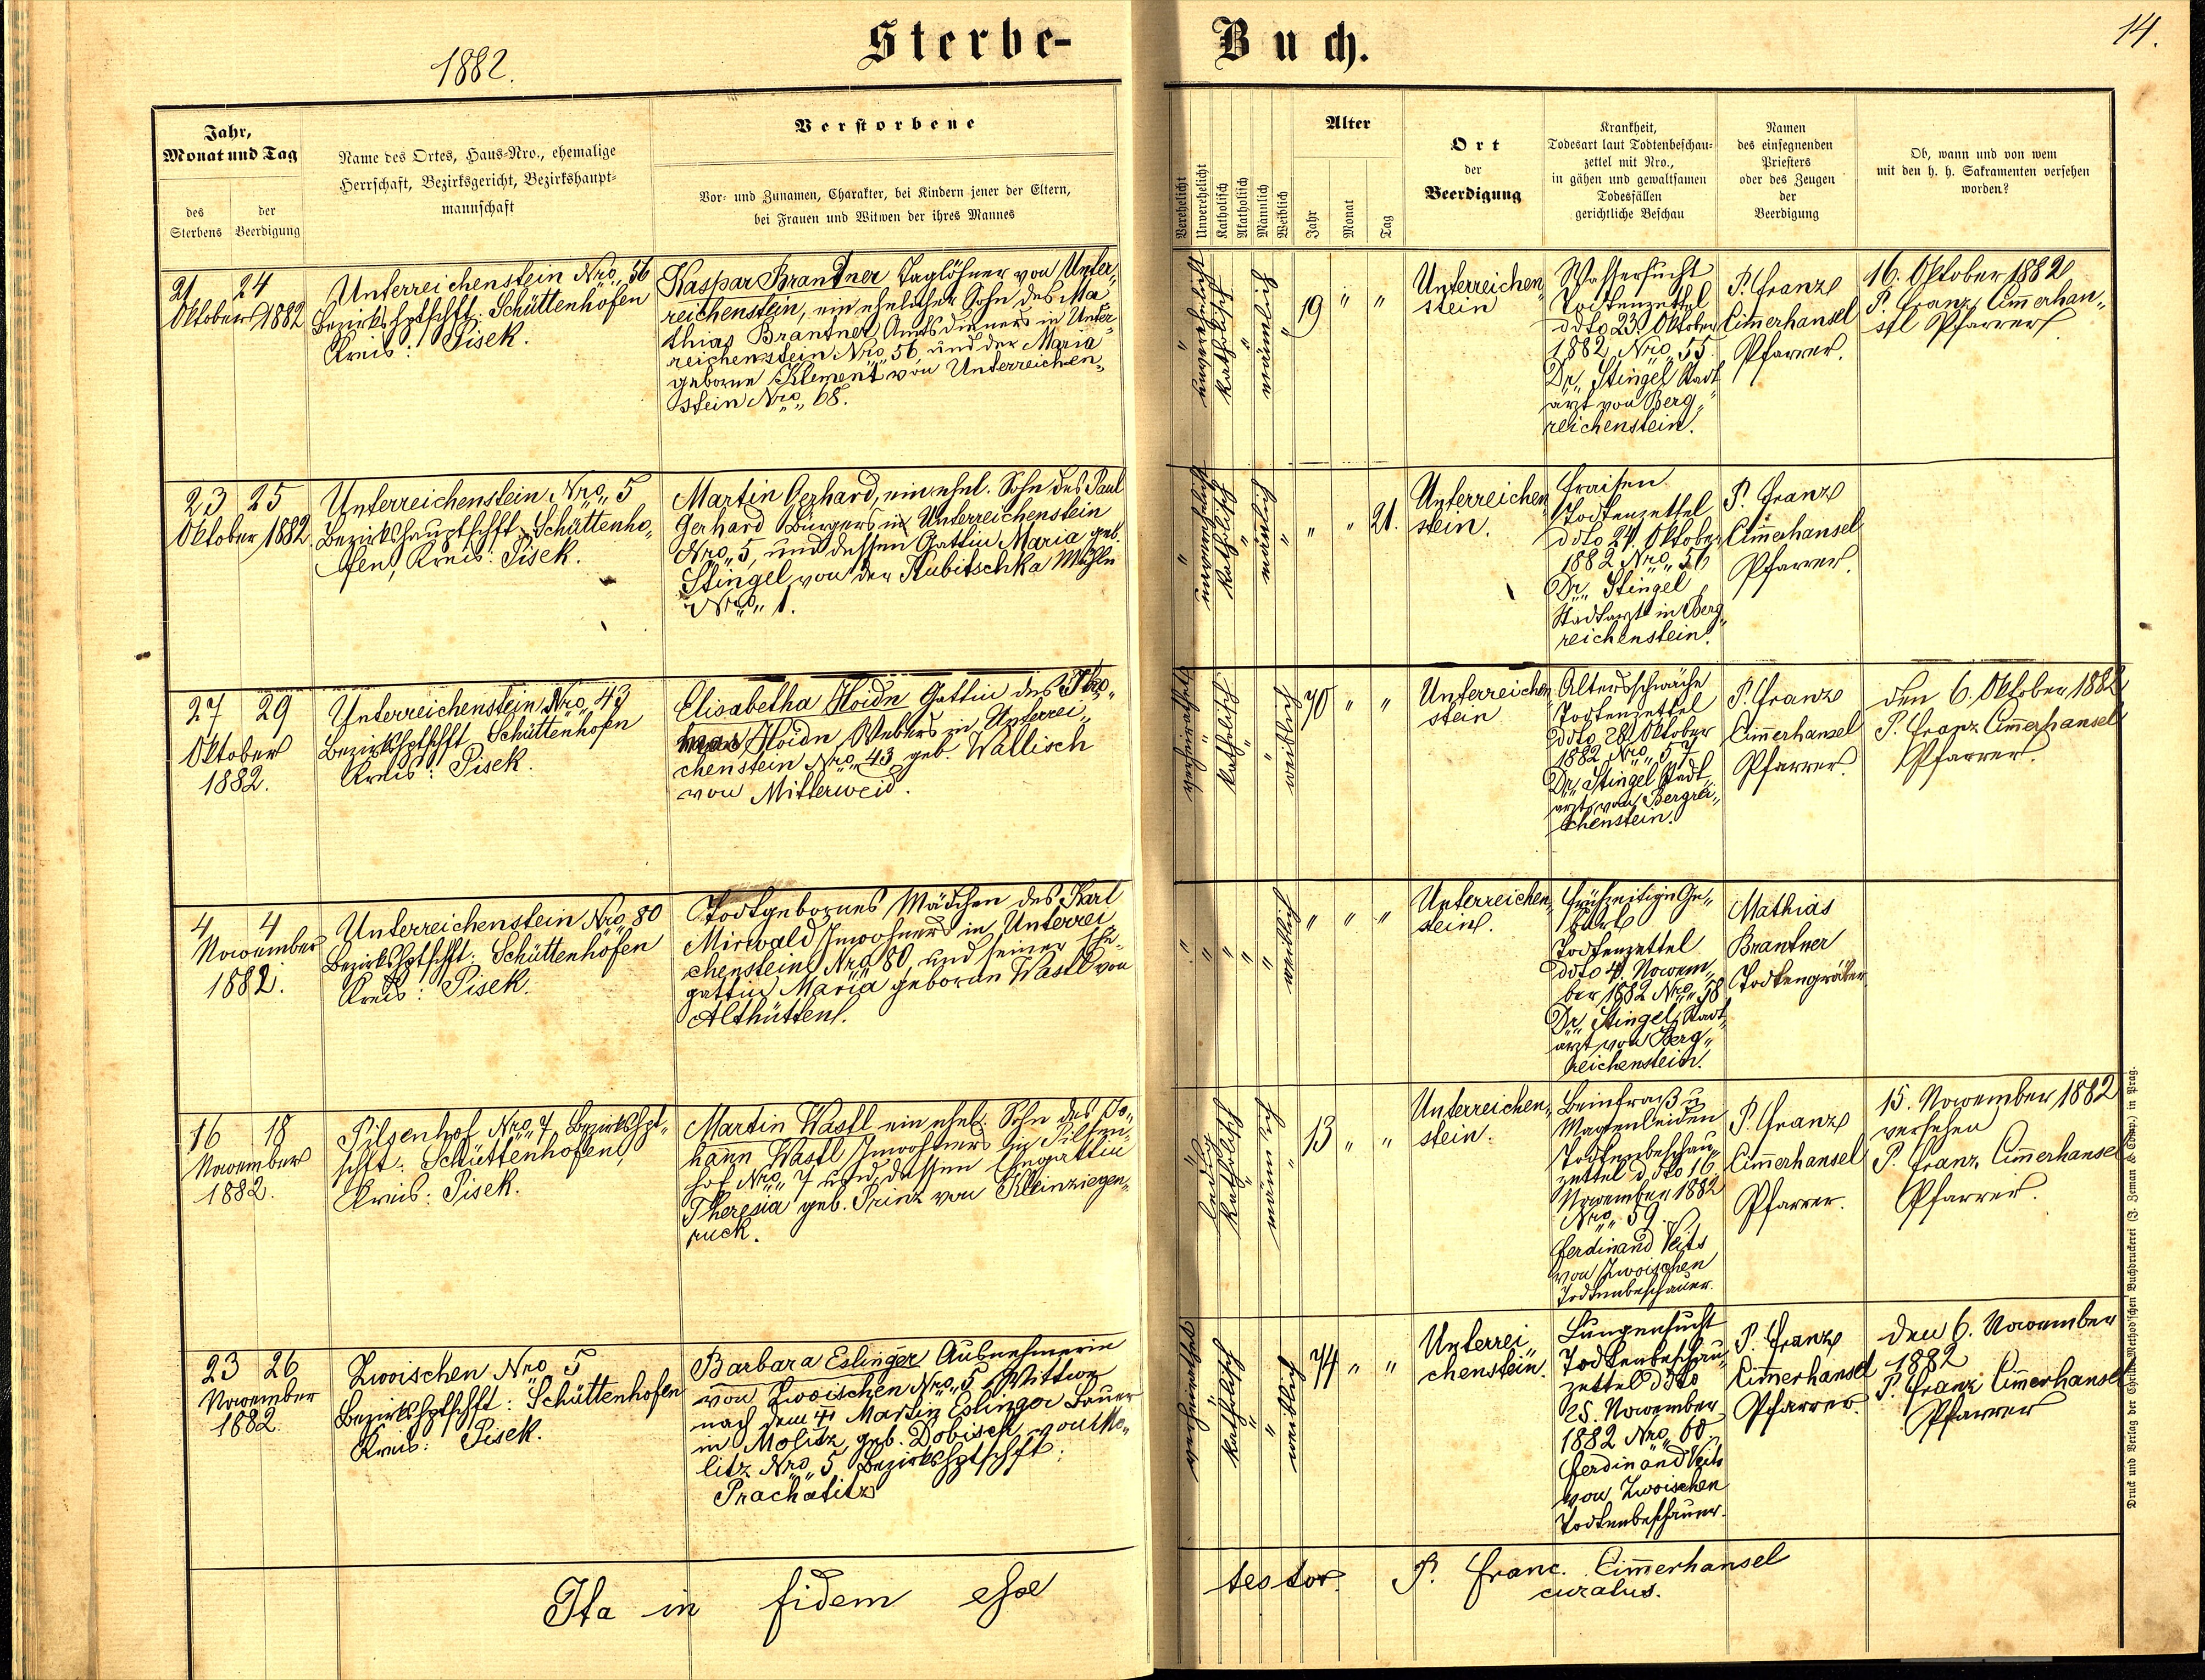 1882.
Sterbe-Buch.
14.
Jahr,
Monat und Tag
des
Sterbens
der
Beerdigung
Name des Ortes, Haus-Nro., ehemalige
Herrschaft, Bezirksgericht, Bezirkshaupt-
mannschaft
Verstorbene
Vor- und Zunamen, Charakter, bei Kindern jener der Eltern,
bei Frauen und Witwen der ihres Mannes
Verehelicht
Unverehelicht
Katholisch
Akatholisch
Männlich
Weiblich
Alter
Jahr
Monat
Tag
Ort
der
Beerdigung
Krankheit,
Todesart laut Todtenbeschau-
zettel mit Nro.,
in gähen und gewaltsamen
Todesfällen
gerichtliche Beschau
Namen
des einsegnenden
Priesters
oder des Zeugen
der
Beerdigung
Ob, wann und von wem
mit den h. h. Sakramenten versehen
worden?
21 24
Oktober 1882
Unterreichenstein Nro. 56
Bezirkshptschft: Schüttenhofen
Kreis: Pisek.
Kaspar Brantner Taglöhner von Unter„
reichenstein, ein ehelicher Sohn des Ma„
thias Brantner Amtsdieners in Unter„
reichenstein Nro. 56, und der Maria
geborne Klement von Unterreichen„
stein Nro. 68.
„ unverehelicht katholisch „ männlich „
19 „ „
Unterreichen„
stein
Wassersucht
Todtenzettel
ddto 23. Oktober
1882 Nro. 55.
Dr. Stingel Stadt
arzt von Berg„
reichenstein.
P. Franz
Cim̄erhansel
Pfarrer.
16. Oktober 1882
P. Franz Cim̄erhan„
sel Pfarrer
23 25
Oktober 1882.
Unterreichenstein Nro. 5
Bezirkshauptschft: Schüttenho„
fen, Kreis: Pisek.
Martin Gerhard, ein ehel. Sohn des Paul
Gerhard Bürgers in Unterreichenstein
Nro. 5, und dessen Gattin Maria geb.
Stingel von der Kubitschka Mühle
Nro. 1.
„ unverehelicht katholisch „ männlich „
„ „ 21.
Unterreichen„
stein.
Fraisen
Todtenzettel
ddto 24. Oktober
1882 Nro. 56
Dr. Stingel
Stadtarzt in Berg„
reichenstein.
P. Franz
Cim̄erhansel
Pfarrer.
27 29
Oktober
1882.
Unterreichenstein Nro. 43
Bezirkshptschft Schüttenhofen
Kreis: Pisek.
Elisabetha Hoidn Gattin des Tho„
mas Hoidn Webers in Unterrei„
chenstein Nro. 43 geb. Wallisch
von Mitterweid.
verheirathete „ katholisch „ „ weiblich
70 „ „
Unterreichen„
stein
Altersschwäche
Todtenzettel
ddto 28. Oktober
1882 Nro. 57
Dr. Stingel Stadt„
arzt von Bergrei„
chenstein.
P. Franz
Cim̄erhansel
Pfarrer.
den 6. Oktober 1882
P. Franz Cim̄erhansel
Pfarrer.
4 4
November
1882.
Unterreichenstein Nro. 80
Bezirkshptschft: Schüttenhofen
Kreis: Pisek.
Todtgebornes Mädchen des Karl
Mirwald Inwohners in Unterrei
chenstein Nro. 80, und seiner Ehe„
gattin Maria geborne Wastl von
Althütten.
„ „ „ „ „ weiblich
„ „ „
Unterreichen„
stein.
Frühzeitige Ge„
burt
Todtenzettel
ddto 4. Novem„
ber 1882 Nro. 58
Dr. Stingel Stadt„
arzt von Berg„
reichenstein.
Mathias
Brantner
Todtengräber
16 18
November
1882.
Pilsenhof Nro. 7 Bezirkshpt„
schft: Schüttenhofen,
Kreis: Pisek.
Martin Wastl ein ehel. Sohn des Jo„
han̄n Wastl Inwohners in Pilsen„
hof Nro. 7 und dessen Ehegattin
Theresia geb. Prinz von Kleinziegen„
ruck.
„ ledig katholisch „ männlich „
13 „ „
Unterreichen„
stein.
Beinfraß u
Magenleiden
Todtenbeschau„
zettel ddto 16.
November 1882
Nro. 59.
Ferdinand Veits
von Zwoischen
Todtenbeschauer.
P. Franz
Cim̄erhansel
Pfarrer.
15. November 1882
versehen
P. Franz Cim̄erhansel
Pfarrer.
23 26
November
1882.
Zwoischen Nro. 5
Bezirkshptschft: Schüttenhofen
Kreis: Pisek.
Barbara Eslinger Ausnehmerin
von Zwoischen Nro. 5, Wittwe
nach dem † Martin Eslinger Bauer
in Molitz geb. Dobisch von Mo„
litz Nro. 5 Bezirkshptschft:
Prachatitz
verheirathet „ katholisch „ „ weiblich
74 „ „
Unterrei„
chenstein.
Lungensucht
Todtenbeschau„
zettel ddto
25. November
1882 Nro. 60
Ferdinand Veits
von Zwoischen
Todtenbeschauer.
P. Franz
Cim̄erhansel
Pfarrer.
den 6. November
1882
P. Franz Cim̄erhansel
Pfarrer
Ita in fidem esse testor. P. Franc. Cim̄erhansel
curatus.
Druck und Verlag der Cyrillo-Method'schen Buchdruckerei (J. Zeman & Comp.) in Prag.